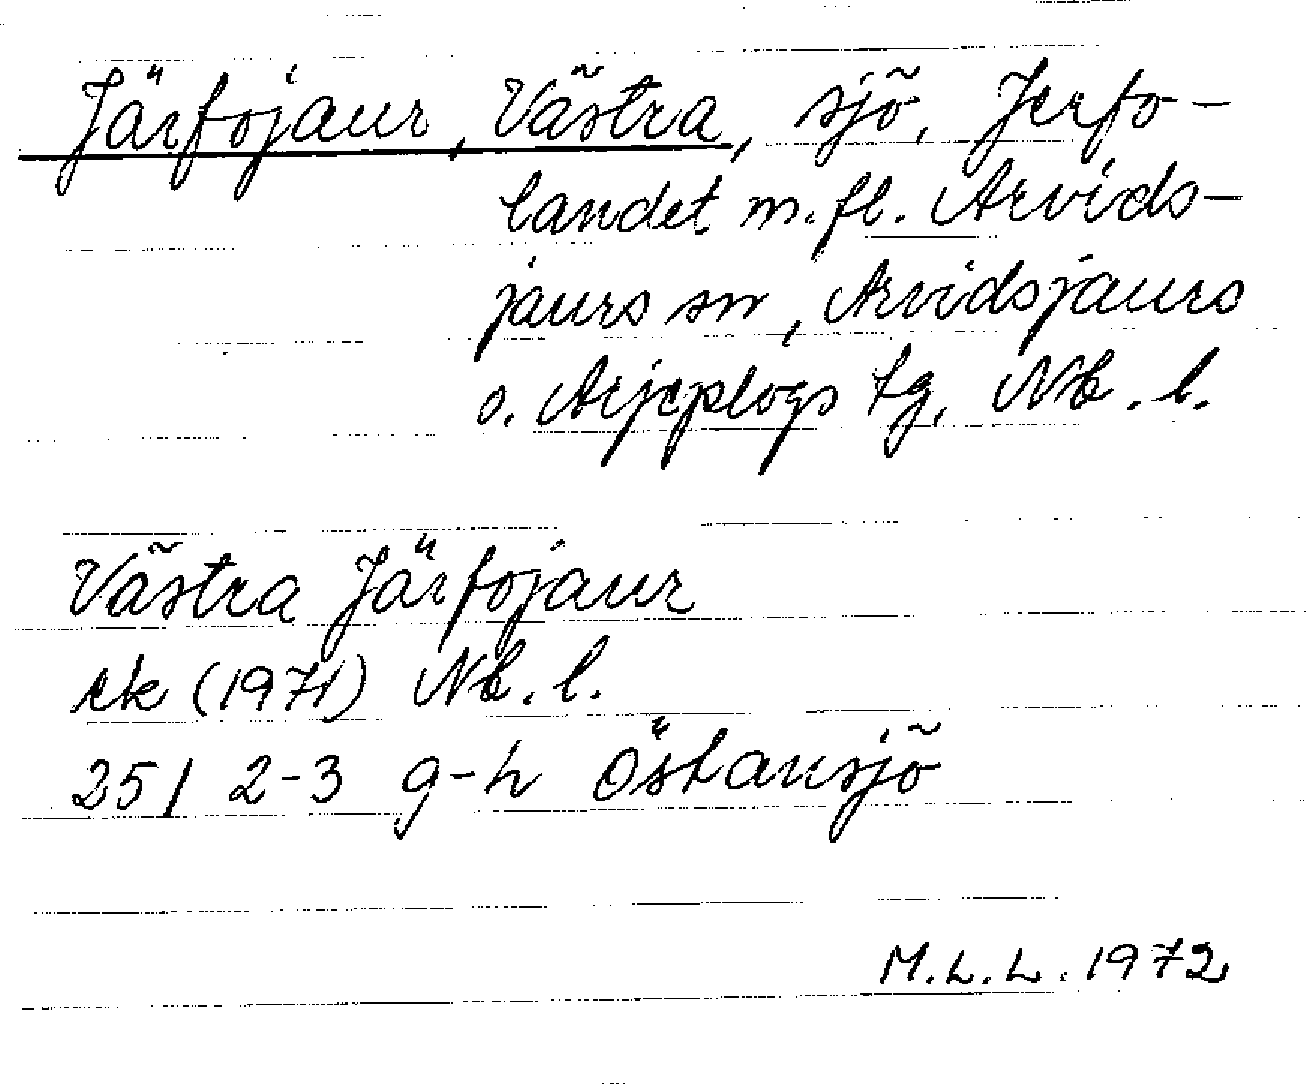 Järfojaur, Västra, sjö, Jerfo-
landet m.fl. Arvids-
jaurs sn, Arvidsjaurs
o. Arjeplogs tg, Nb. l.
Västra Järfojaur
ek (1971) Nb. l.
25 I 2-3 g-h Östansjö
M.L.L. 1972